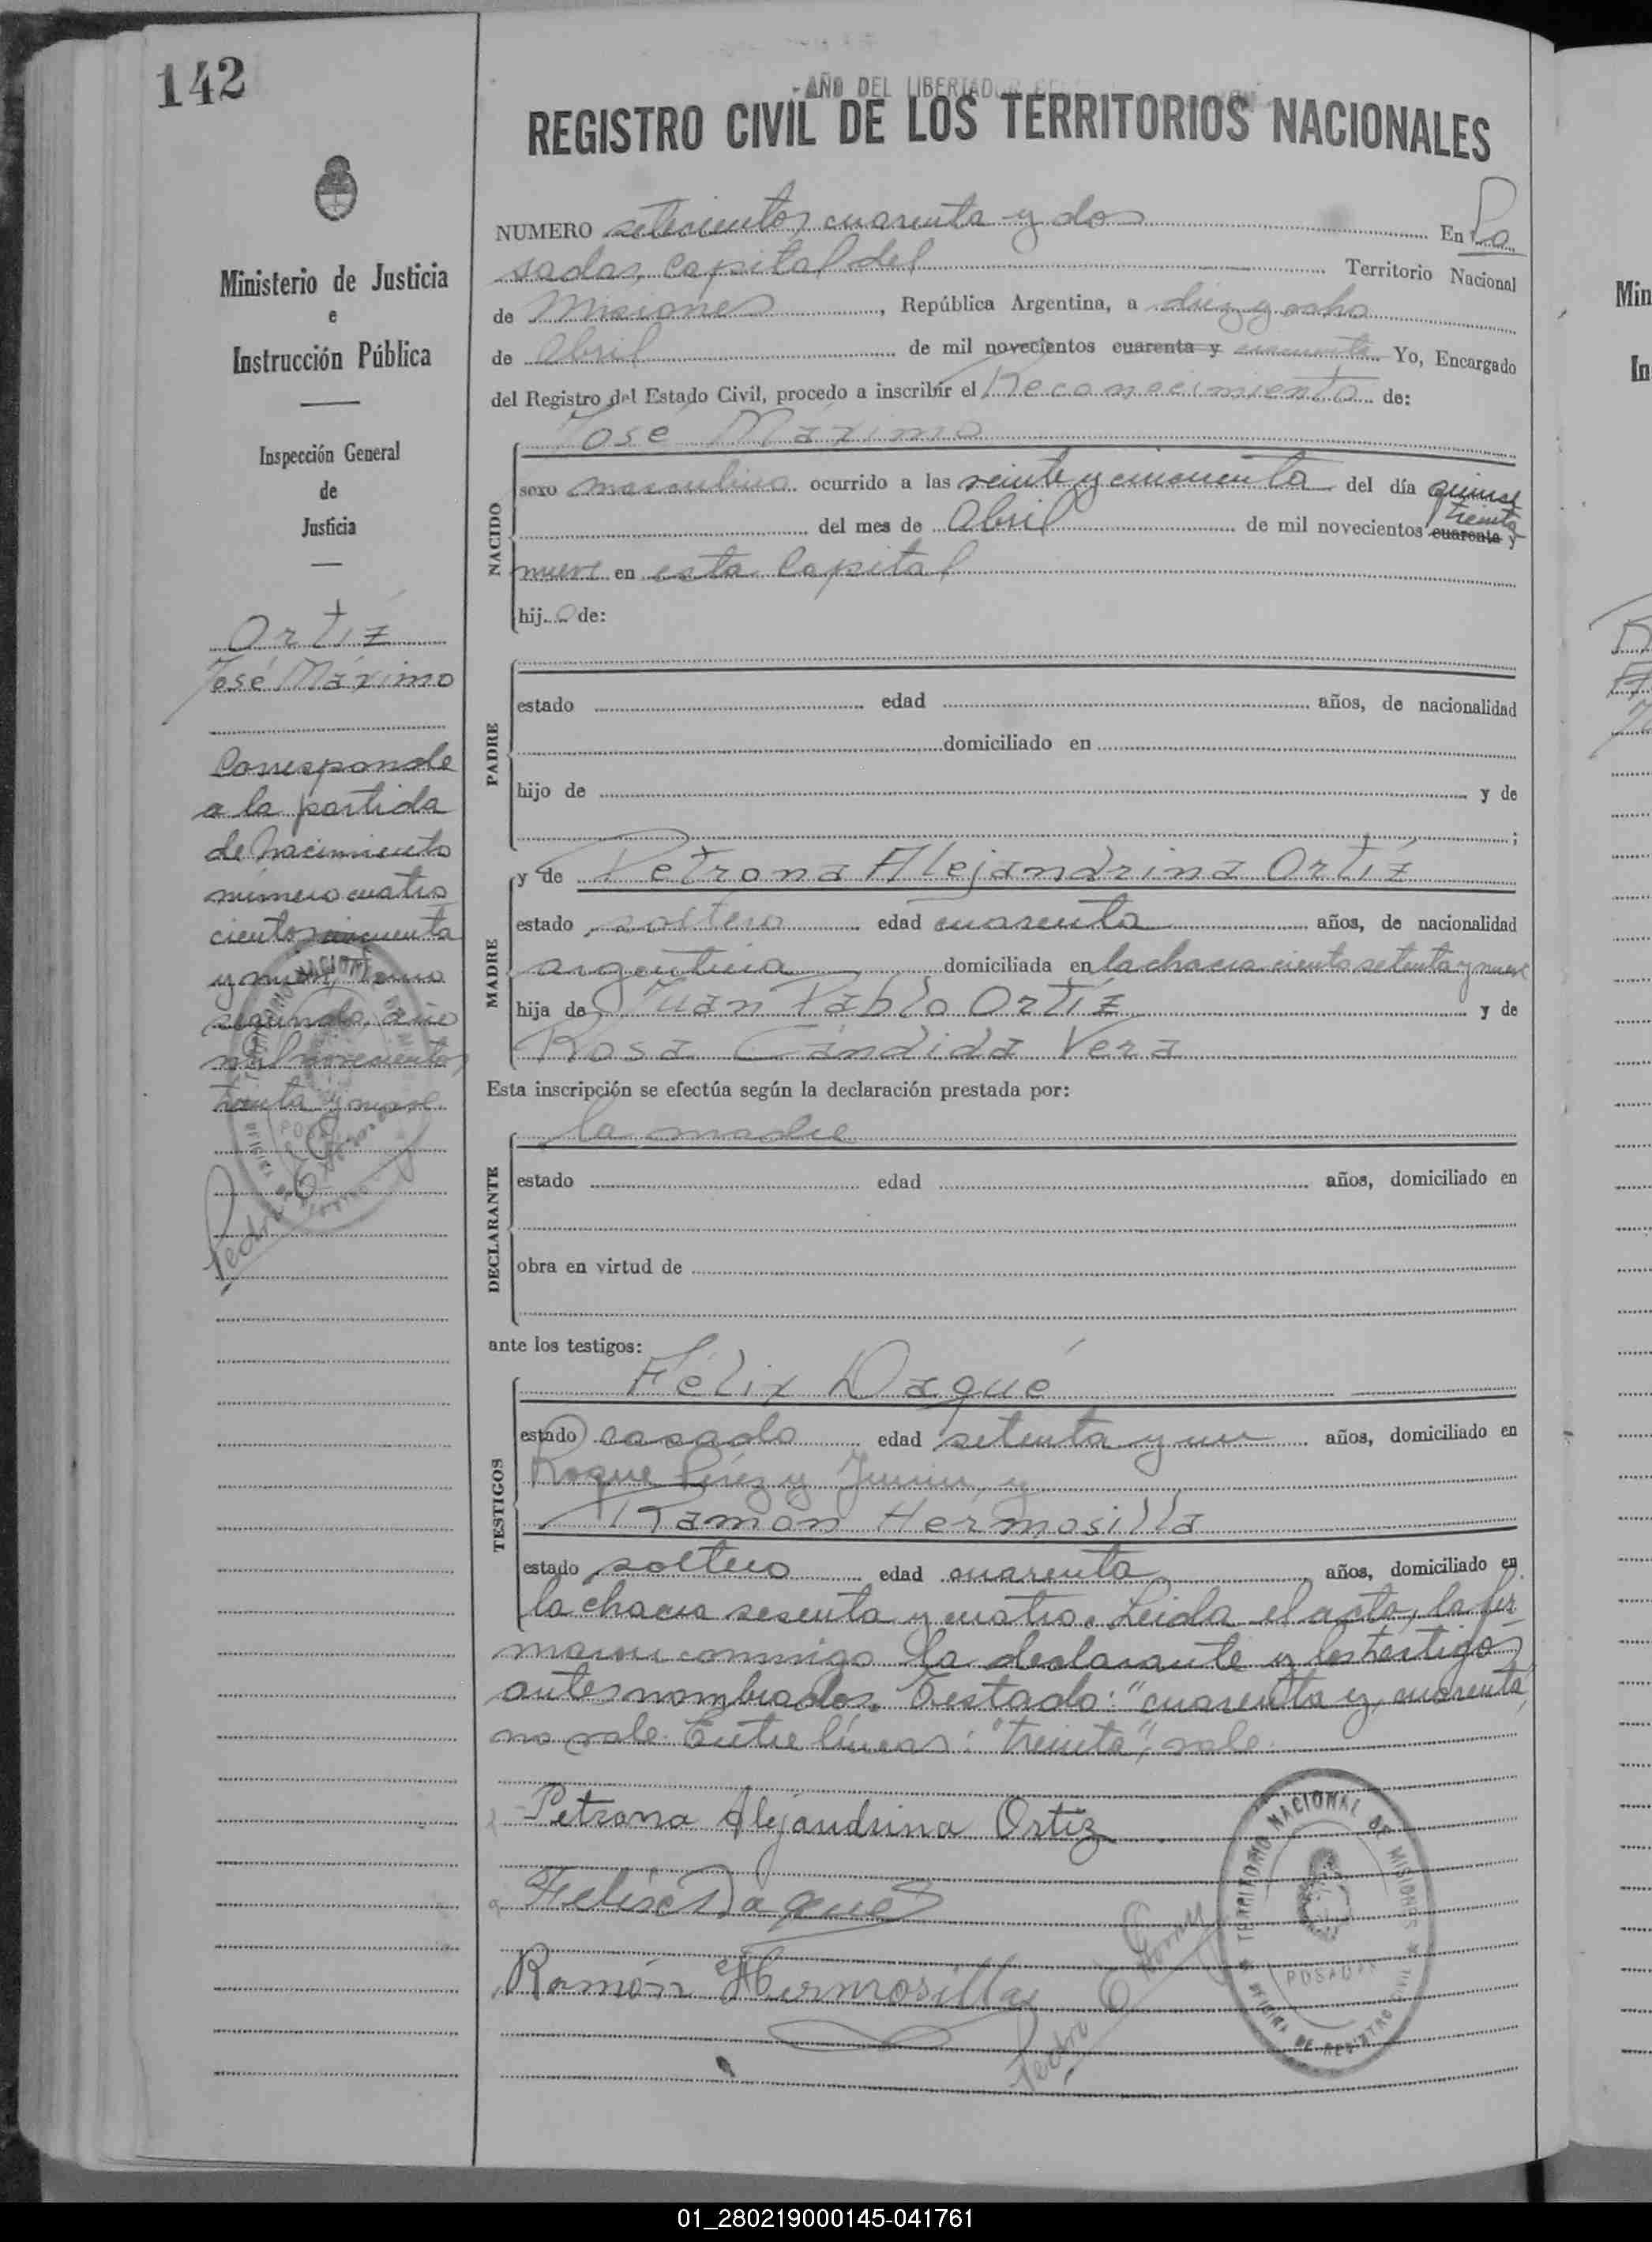 142
- AÑO DEL LIBERTADOR
REGISTRO CIVIL DE LOS TERRITORIOS NACIONALES
Ministerio de Justicia
e
Instrucción Pública
Inspección General
de
Justicia
Ortíz
José Máximo
Corresponde
a la partida
de nacimiento
número cuatro
cientos cincuenta
y nueve, Tomo
segundo, año
mil novecientos
treinta y nueve.
NUMERO setecientos cuarenta y dos En Po
sadas, capital del Territorio Nacional
de Misiones, República Argentina, a diez y ocho
de Abril de mil novecientos cuarenta y cincuenta Yo, Encargado
del Registro del Estado Civil, procedo a inscribir el Reconocimiento de:
José Máximo
NACIDO
sexo masculino ocurrido a las veinte y cincuenta del día quince
del mes de Abril de mil novecientos treinta cuarenta y
nueve en esta Capital
hijo de:
PADRE
estado edad años, de nacionalidad
domiciliado en
hijo de y de
;
MADRE
y de Petrona Alejandrina Ortíz
estado soltera edad cuarenta años, de nacionalidad
argentina domiciliada en la chacra ciento setenta y nueve
hija de Juan Pablo Ortíz y de
Rosa Cándida Vera
Esta inscripción se efectúa según la declaración prestada por:
la madre
DECLARANTE
estado edad años, domiciliado en
obra en virtud de
ante los testigos:
TESTIGOS
Félix Daqué
estado casado edad setenta y un años, domiciliado en
Roque Pérez y Junin, y
Ramón Hermosilla
estado soltero edad cuarenta años, domiciliado en
la chacra sesenta y cuatro. Leida el acta, la fir
maron conmigo la declarante y los testigos
antes nombrados. Testado: "cuarenta y, cuarenta",
no vale. Entre líneas: "treinta", vale.
Petrona Alejandrina Ortiz
Felix Daque
Ramón Hermosilla
Pedro E. G
TERRITORIO NACIONAL DE MISIONES
POSADAS
OFICINA DE REGISTRO CIVIL
01_280219000145-041761